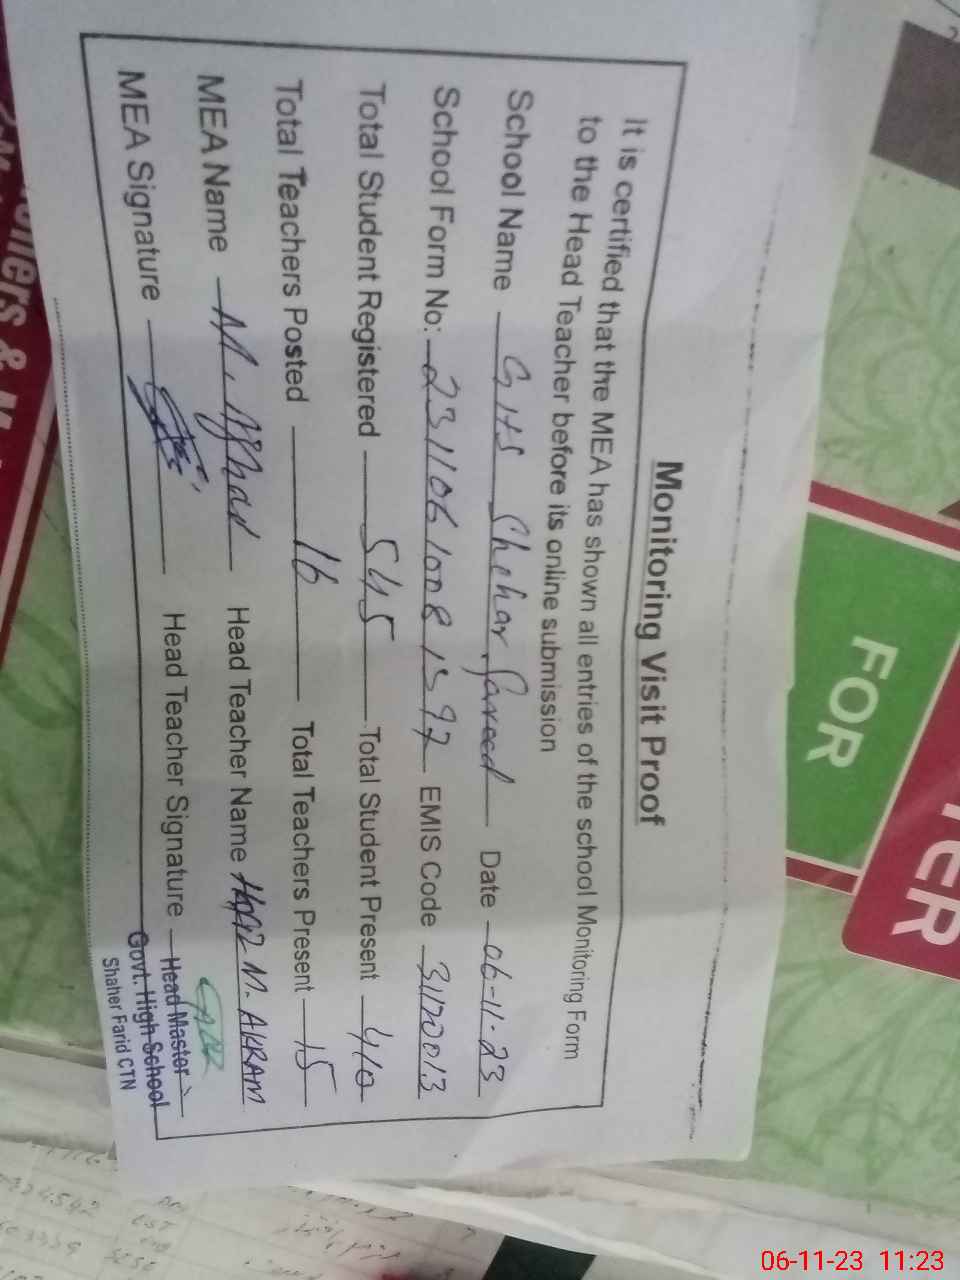 Monitoring Visit Proof
It is certified that the MEA has shown all entries of the school Monitoring Form
to the Head Teacher before its online submission
School Name GHS Shehar Fareed Date 06-11-23
School Form No: 2311061008 EMIS Code 31120013
Total Student Registered 545 Total Student Present 410
Total Teachers Posted 16 Total Teachers Present 15
MEA Name Head Teacher Name M. AKRAM
MEA Signature Head Teacher Signature Head Master
Govt. High School
Shaher Farid CTN
FOR
06-11-23 11:23